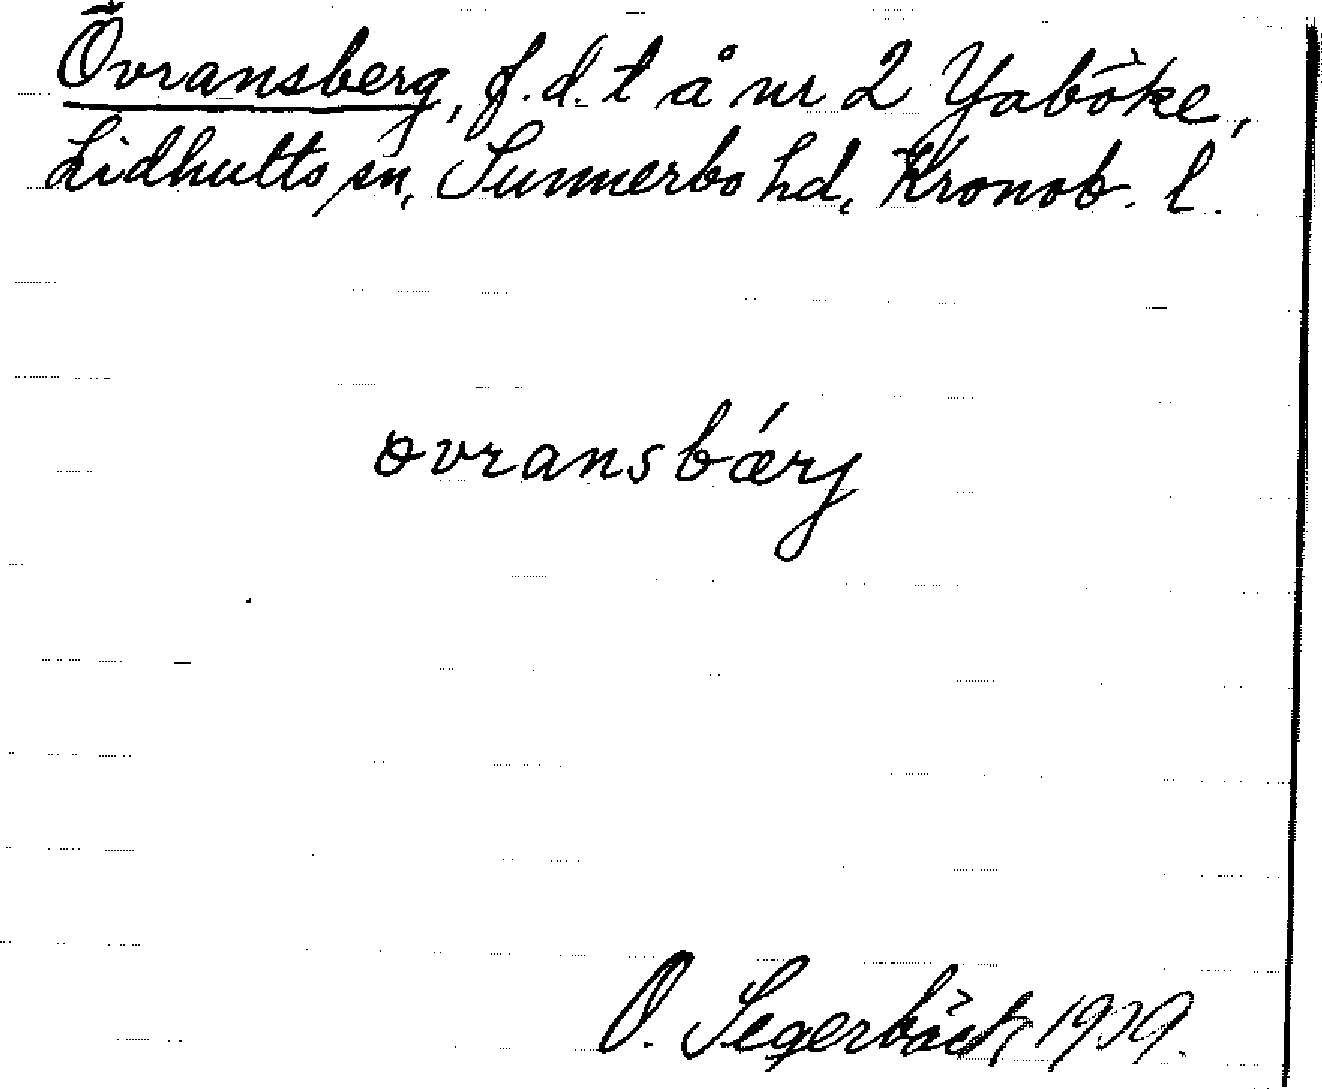 Övransberg, f.d. t å nr 2 Yaböke,
Lidhults sn, Sunnerbo hd, Kronob. l.
ɵvransbǽrj
O. Segerbäck, 1939.